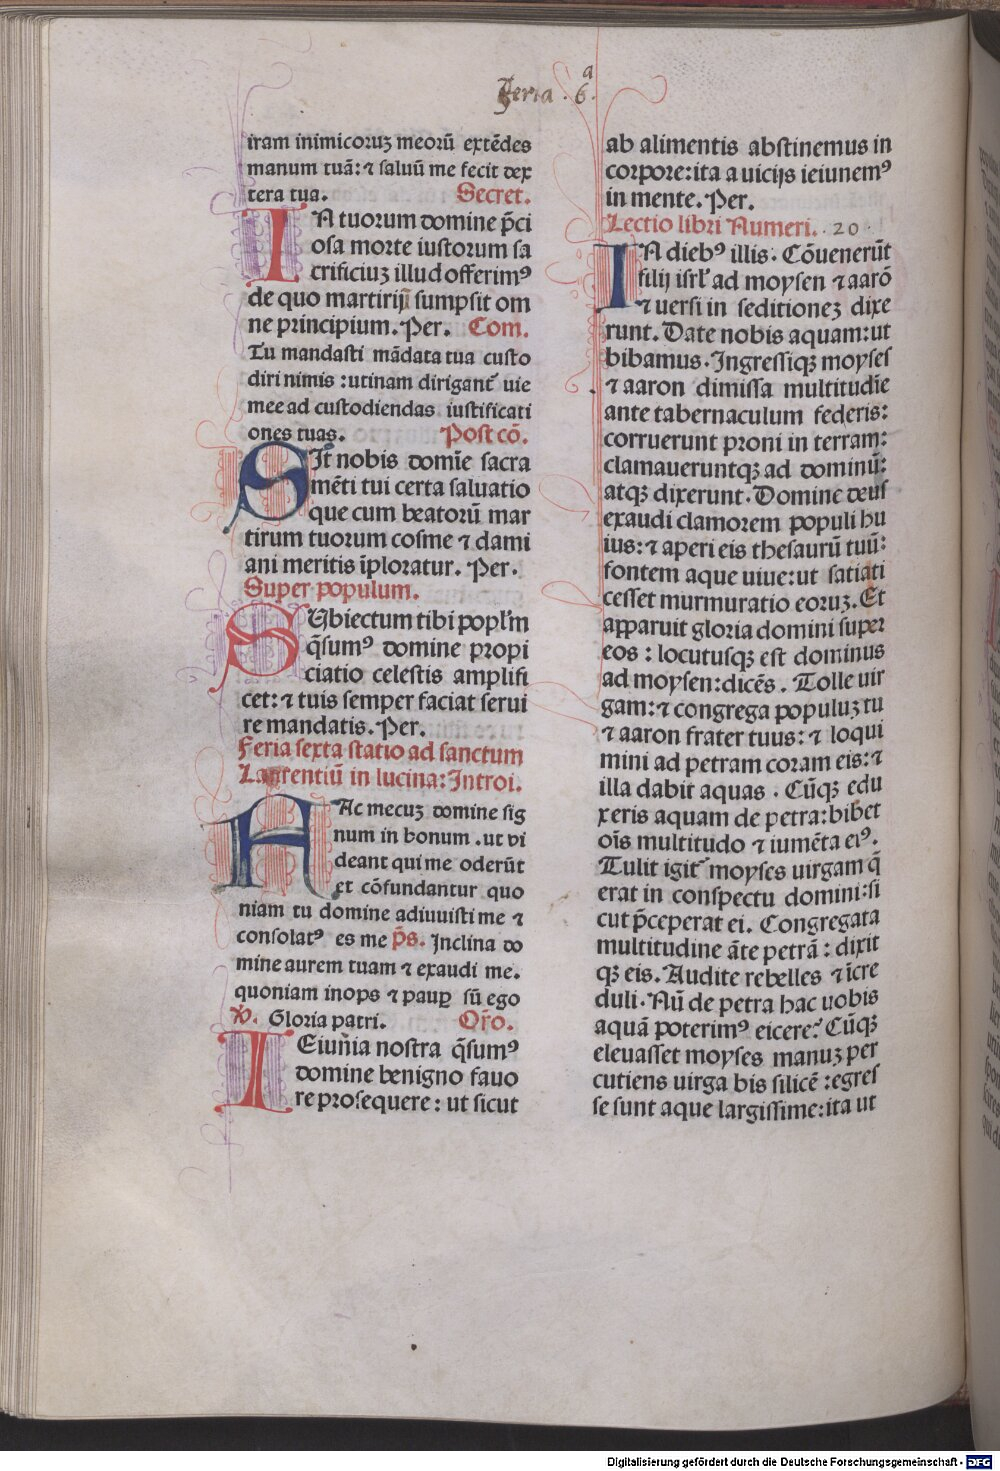 Feria . 6.ª
iram inimicoruʒ meorū extēdes
manum tuā: ⁊ saluū me fecit dex
tera tua. Secret.
IN tuorum domine p̄ci
osa morte iustorum sa
crificiuʒ illud offerimꝰ
de quo martirij sumpsit om
ne principium. Per. Com.
Tu mandasti mādata tua custo
diri nimis : utinam dirigant̄ uie
mee ad custodiendas iustificati
ones tuas. Post cō.
SIt nobis domīe sacra
mēti tui certa saluatio
que cum beatorū mar
tirum tuorum cosme ⁊ dami
ani meritis īploratur. Per.
Super populum.
SUbiectum tibi popl̄m
q̄sumꝰ domine propi
ciatio celestis amplifi
cet: ⁊ tuis semper faciat serui
re mandatis. Per.
Feria sexta statio ad sanctum
Laurentiū in lucina: Introi.
FAc mecuʒ domine sig
num in bonum . ut vi
deant qui me oderūt
et cōfundantur quo
niam tu domine adiuuisti me ⁊
consolatꝰ es me p̄s. Inclina do
mine aurem tuam ⁊ exaudi me.
quoniam inops ⁊ paup̲ sū ego
℣. Gloria patri. Or̄o.
IEiuñia nostra q̄sumꝰ
domine benigno fauo
re prosequere : ut sicut
ab alimentis abstinemus in
corpore: ita a uicijs ieiunemꝰ
in mente. Per.
Lectio libri Numeri. 20
IN diebꝰ illis. Cōuenerūt
filij isrl̄ ad moysen ⁊ aarō
⁊ uersi in seditioneʒ dixe
runt. Date nobis aquam: ut
bibamus. Ingressiqʒ moyses
⁊ aaron dimissa multitudīe
ante tabernaculum federis:
corruerunt proni in terram:
clamaueruntqʒ ad dominū:
atqʒ dixerunt. Domine deus
exaudi clamorem populi hu
ius: ⁊ aperi eis thesaurū tuū:
fontem aque uiue: ut satiati
cesset murmuratio eoruʒ. Et
apparuit gloria domini super
eos : locutusqʒ est dominus
ad moysen: dicēs. Tolle uir
gam: ⁊ congrega populuʒ tu
⁊ aaron frater tuus: ⁊ loqui
mini ad petram coram eis: ⁊
illa dabit aquas . Cūqʒ edu
xeris aquam de petra: bibet
oīs multitudo ⁊ iumēta eiꝰ.
Tulit igit̄ moyses uirgam q̄
erat in conspectu domini: si
cut p̄ceperat ei. Congregata
multitudine āte petrā : dixit
qʒ eis. Audite rebelles ⁊ īcre
duli. Nū de petra hac uobis
aquā poterimꝰ eicere? Cūqʒ
eleuasset moyses manuʒ per
cutiens uirga bis silicē : egres
se sunt aque largissime: ita ut
Digitalisierung gefördert durch die Deutsche Forschungsgemeinschaft - DFG